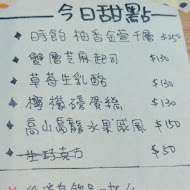 今日甜點
時韵 柚香金萱千層 $250
雙層芝麻起司 $130
草莓生乳酪 $130
檸檬磅蛋糕 $130
高山烏龍水果戚風 $150
生巧克力 $50